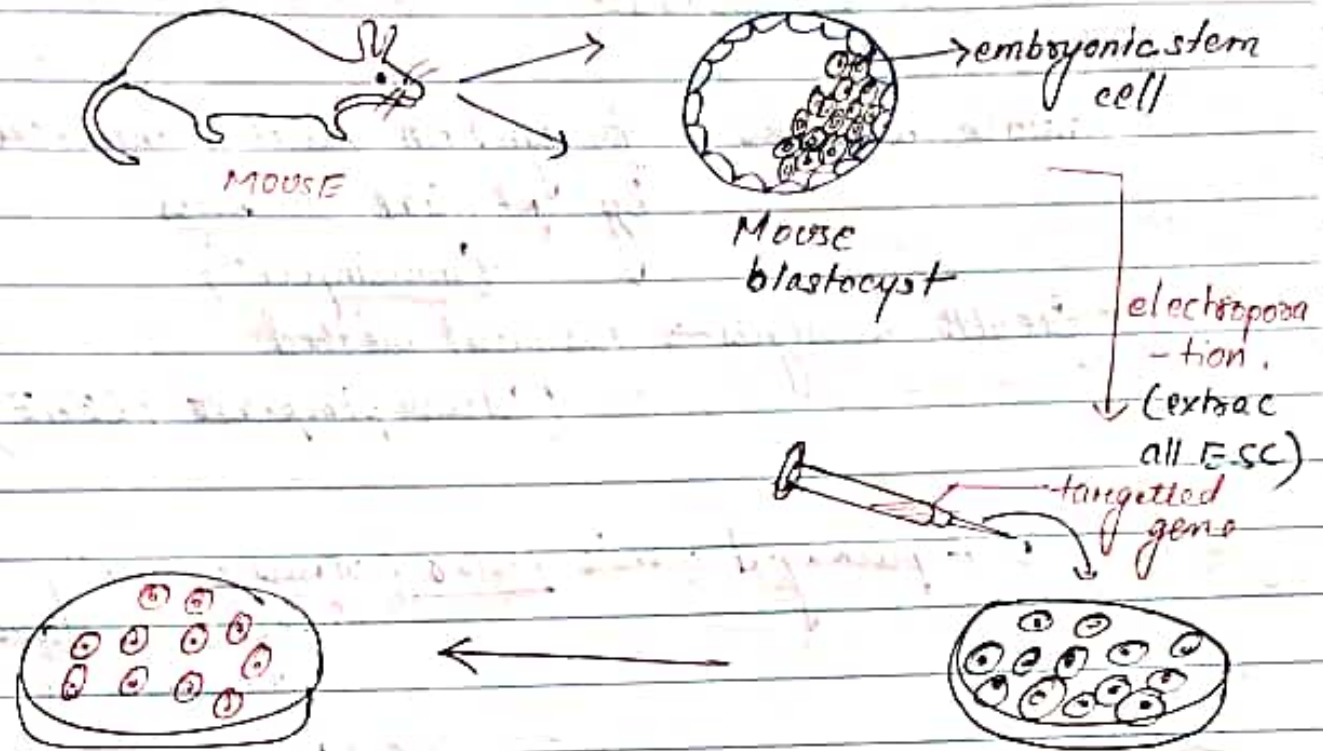 embryonic stem
cell
MOUSE
Mouse
blastocyst
electropora
-tion.
(extrac
all ESC)
targetted
gene